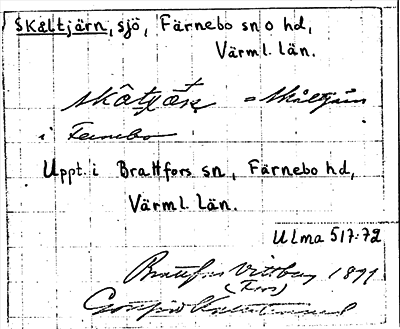 Skåltjärn, sjö, Färnebo sn o hd,
Värml. län.
= Skåltjärn
i Fernebo
Uppt. i Brattfors sn, Färnebo hd,
Värml. län.
Ulma 517:72
Brattfors 1899